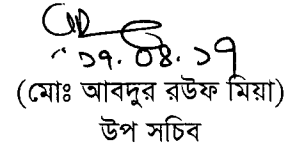 ১৭.০৪.১৭
(মোঃ আবদুর রউফ মিয়া)
উপ সচিব